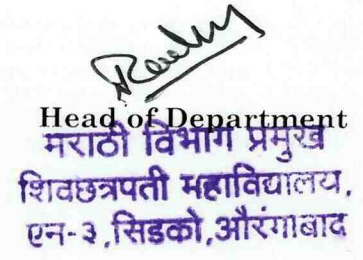 Head of Department
मराठी विभाग प्रमुख
शिवछत्रपती महाविद्यालय,
एन-३,सिडको,औरंगाबाद